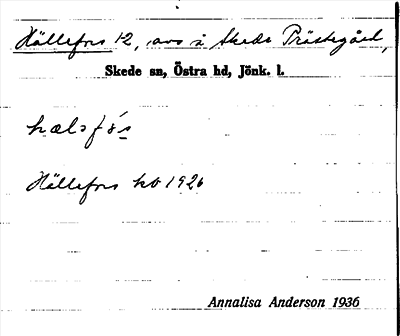 Hällefors 1-2, avs å Skede Prästegård,
Skede sn, Östra hd, Jönk. l.
hælsfɷ́s
Hällefors kb 1926
Annalisa Anderson 1936